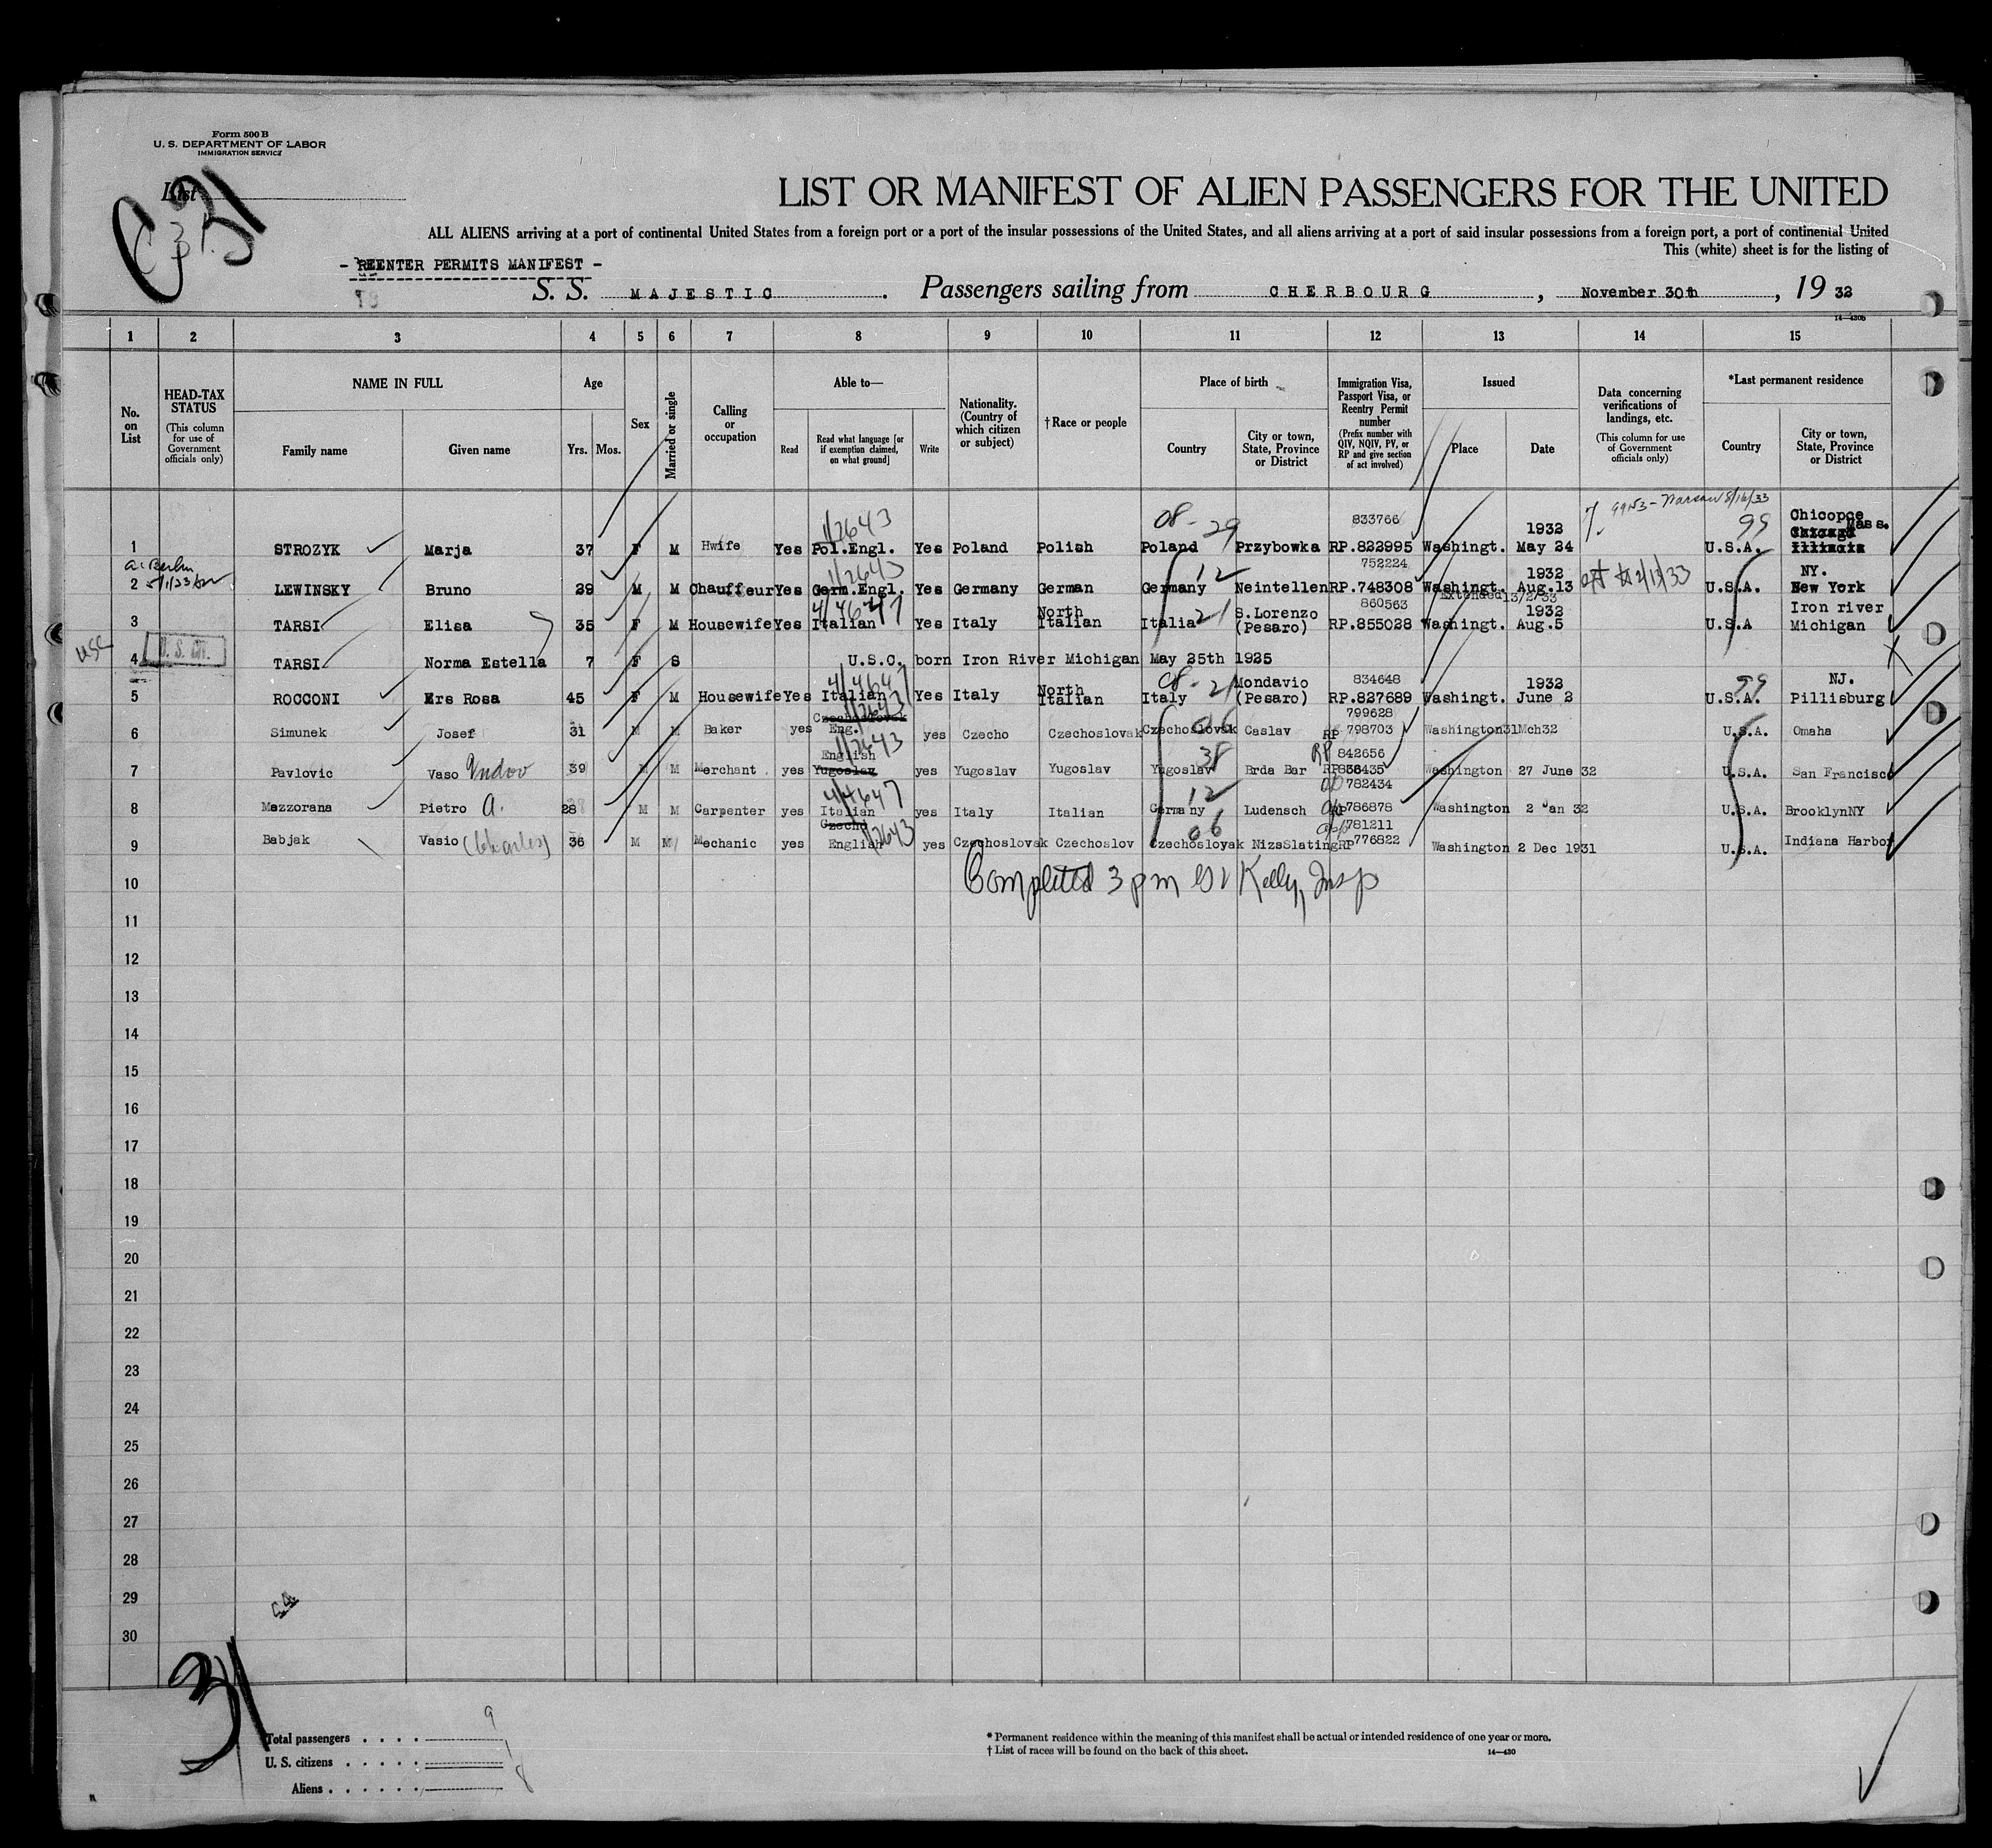 Form 500 B
U. S. DEPARTMENT OF LABOR
IMMIGRATION SERVICE
List
31
LIST OR MANIFEST OF ALIEN PASSENGERS FOR THE UNITED
ALL ALIENS arriving at a port of continental United States from a foreign port or a part of the insular possessions of the United States, and all aliens arriving at a port of said insular possessions from a foreign port, a port of continental United
This (white) sheet is for the listing of
- REENTER PERMITS MANIFEST -
S. S. MAJESTIC. Passengers sailing from CHERBOURG, November 30th, 19 32
14-430b
1 2 3 4 5 6 7 8 9 10 11 12 13 14 15
No. on List
HEAD-TAX STATUS
(This column for use of Government officials only)
NAME IN FULL
Family name Given name
Age
Yrs. Mos.
Sex
Married or single
Calling or occupation
Able to—
Read Read what language [or if exemption claimed, on what ground] Write
Nationality. (Country of which citizen or subject)
† Race or people
Place of birth
Country City or town, State, Province or District
Immigration Visa, Passport Visa, or Reentry Permit number
(Prefix number with QIV, NQIV, PV, or RP and give section of act involved)
Issued
Place Date
Data concerning verifications of landings, etc.
(This column for use of Government officials only)
*Last permanent residence
Country City or town, State, Province or District
1/2643 08-29 833766 1932 99 Chicopee Mass.
1 STROZYK Marja 37 F M Hwife Yes Pol.Engl. Yes Poland Polish Poland Przybowka RP.822995 Washingt. May 24 U.S.A. Illinois
1/2643 12 752224 1932 NY.
2 LEWINSKY Bruno 29 M M Chauffeur Yes Germ.Engl. Yes Germany German Germany Neintellen RP.748308 Washingt. Aug.13 U.S.A. New York
Extended 13/2/33
4/4647 North 21 S.Lorenzo 860563 1932 Iron river
3 TARSI Elisa 35 F M Housewife Yes Italian Yes Italy Italian Italia (Pesaro) RP.855028 Washingt. Aug.5 U.S.A Michigan
USC
4 TARSI Norma Estella 7 F S U.S.C. born Iron River Michigan May 25th 1925
4/4647 North 08-21 Mondavio 834648 1932 99 NJ.
5 ROCCONI Ers Rosa 45 F M Housewife Yes Italian Yes Italy Italian Italy (Pesaro) RP.827689 Washingt. June 2 U.S.A. Pillisburg
1/2643 Czechoslovak 06 799628
6 Simunek Josef 31 M M Baker yes Eng. yes Czecho Czechoslovak Czechoslovak Caslav RP 798703 Washington 31Mch32 U.S.A. Omaha
1/2643 English 38 RP 842656
7 Pavlovic Vaso 39 M M Merchant yes Yugoslav yes Yugoslav Yugoslav Yugoslav Brda Bar Washington 27 June 32 U.S.A. San Francisco
4/4647 12 782434
8 Mazzorana Pietro A. 28 M M Carpenter yes Italian yes Italy Italian Germany Ludensch 786878 Washington 2 Jan 32 U.S.A. BrooklynNY
Czech 1/2643 06 781211
9 Babjak Vasio (Charles) 36 M M Mechanic yes English yes Czechoslovak Czechoslov Czechoslovak NizsSlating RP 776822 Washington 2 Dec 1931 U.S.A. Indiana Harbor
10 Completed 3 pm Kelly, Insp
11
12
13
14
15
16
17
18
19
20
21
22
23
24
25
26
27
28
29
30
31
Total passengers . . . . 9
U. S. citizens . . . . . 1
Aliens . . . . . . 8
* Permanent residence within the meaning of this manifest shall be actual or intended residence of one year or more.
† List of races will be found on the back of this sheet.
14-430